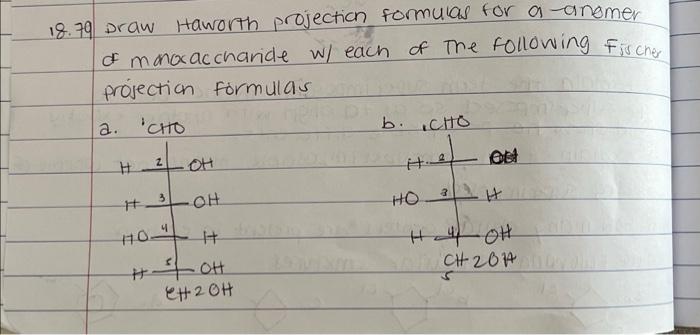 18.79 Draw Haworth projection formulas for a-anomer
of monosaccharide w/ each of The following Fischer
projection formulas
a. 1CHO
H 2 OH
H 3 OH
HO 4 H
H 5 OH
CH2OH
b. 1CHO
H 2 OH
HO 3 H
H 4 OH
CH2OH
5